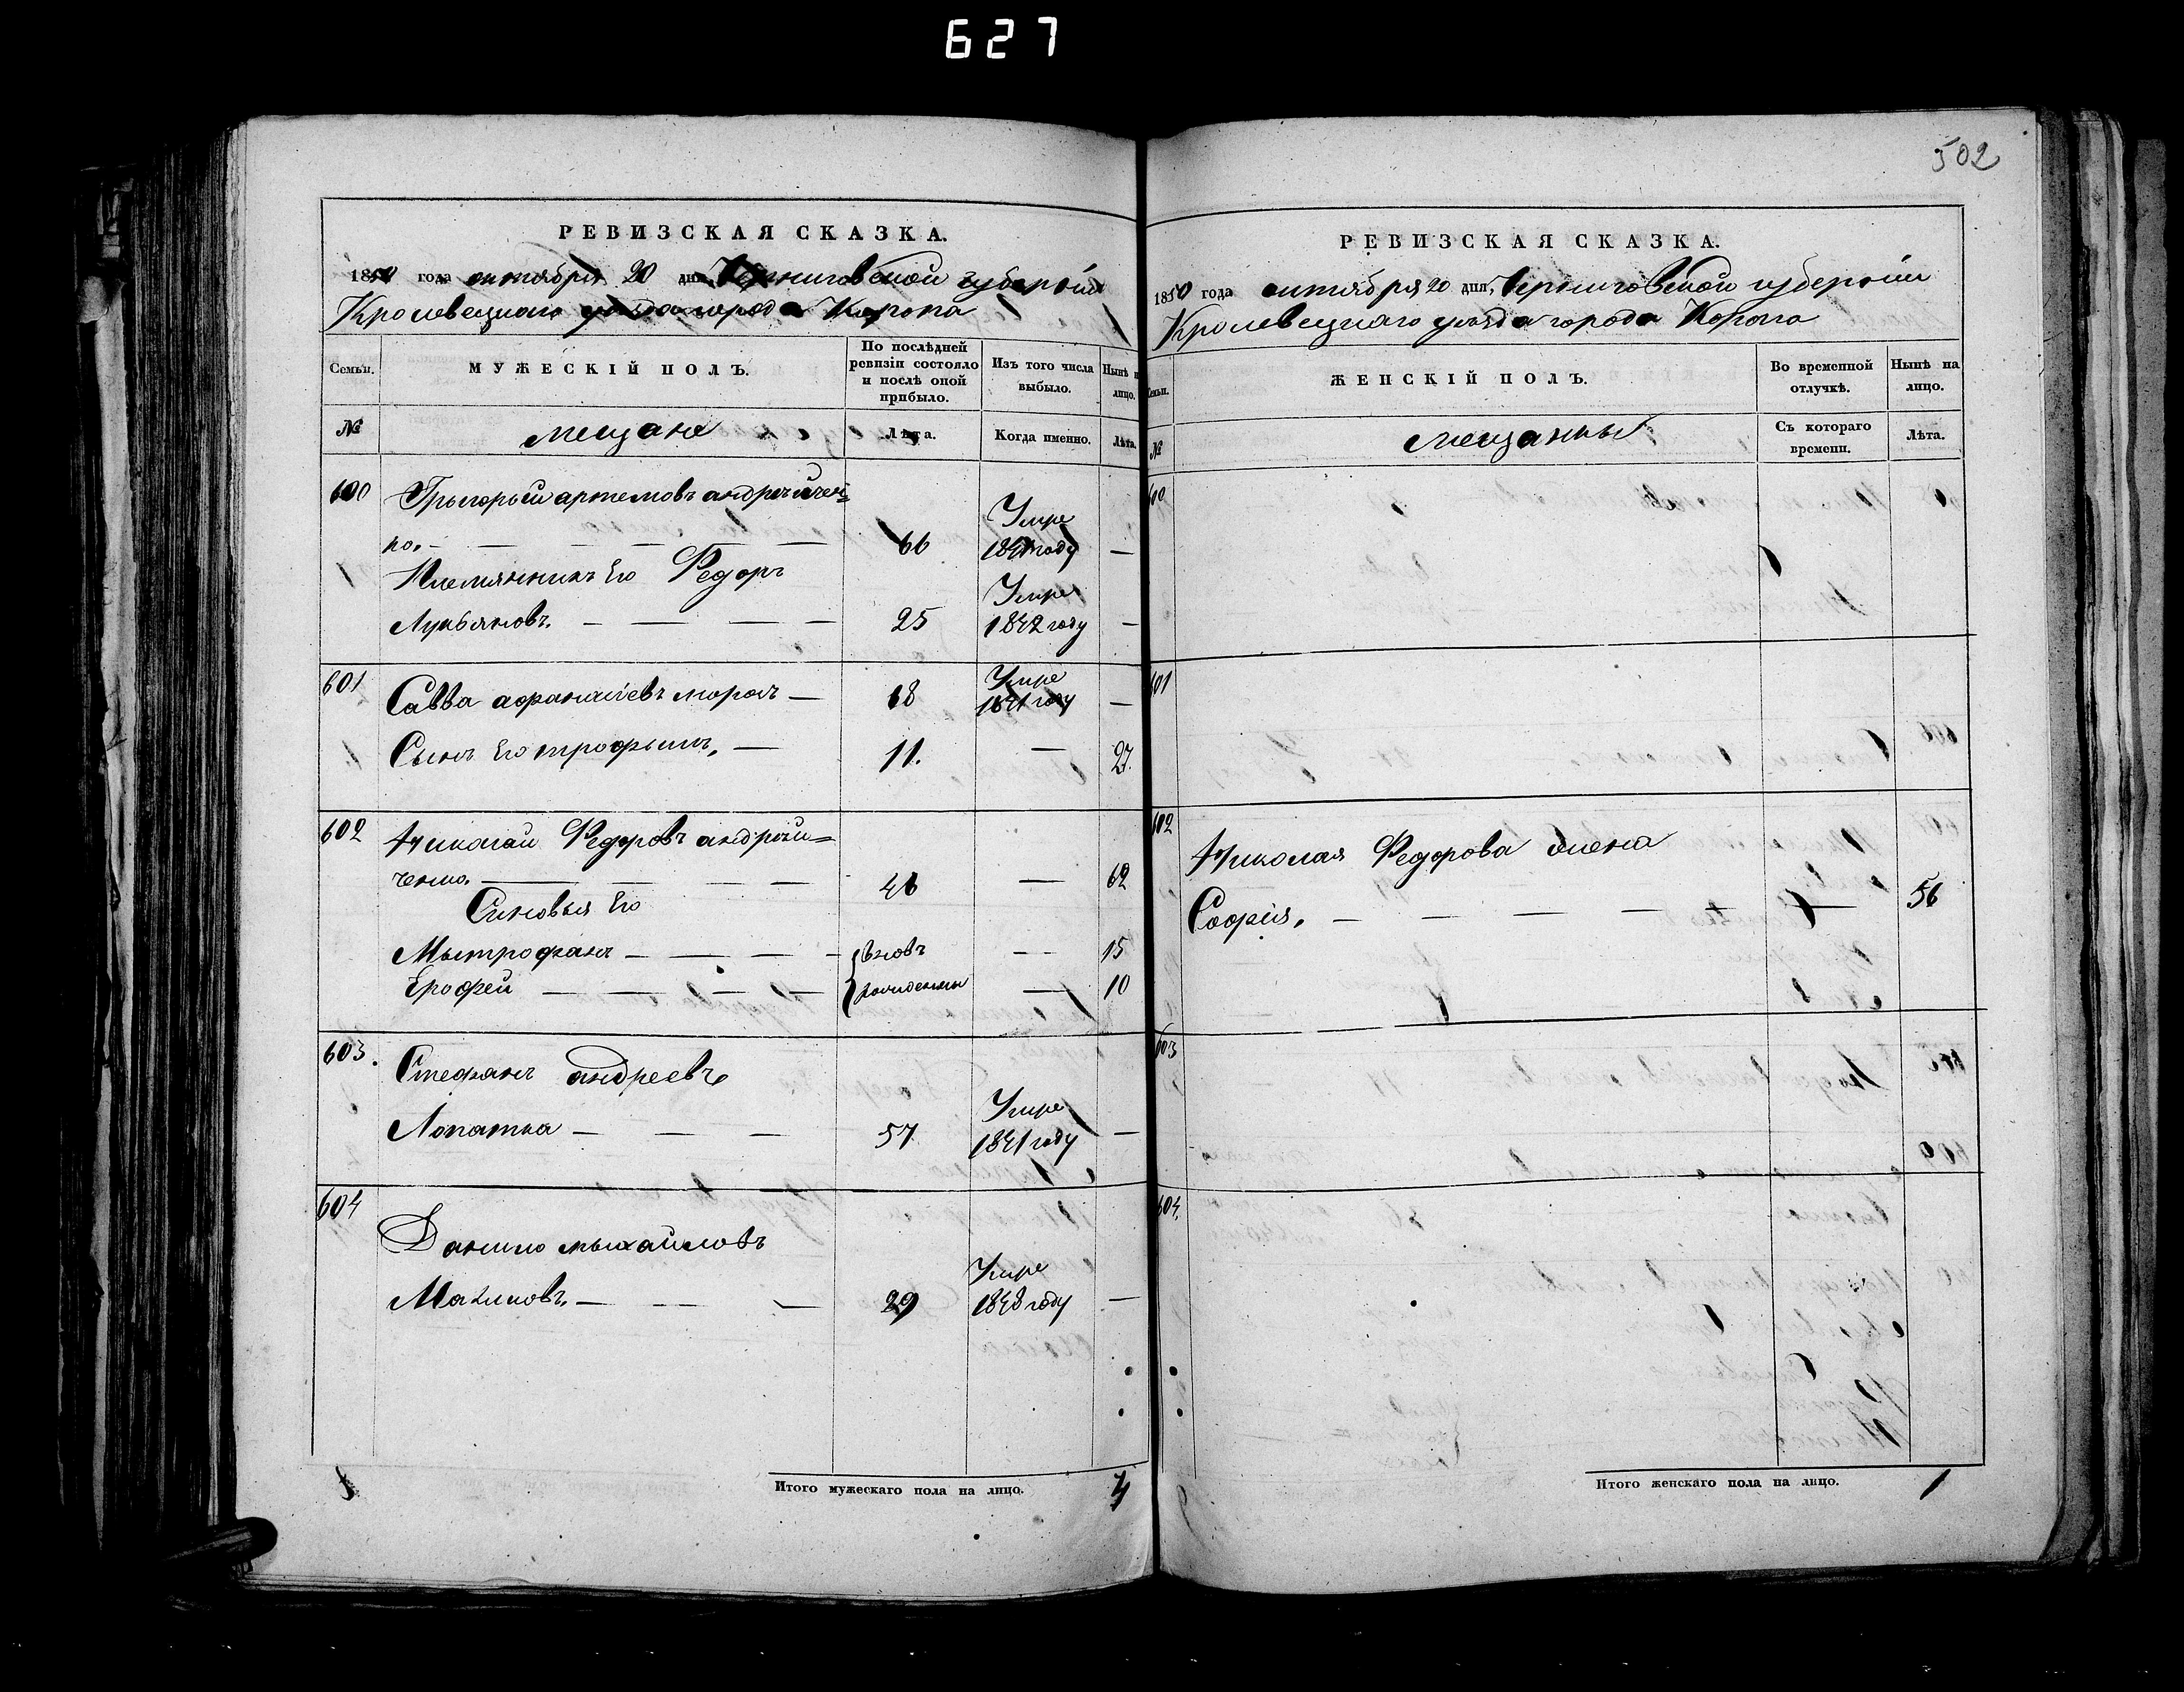 627
502
РЕВИЗСКАЯ СКАЗКА.
1850 года октября 20 дня, Черниговской губернiи
Кролевецкаго уезда города Коропа
Семьи.
МУЖЕСКІЙ ПОЛЪ.
По послѣдней ревизіи состояло и послѣ оной прибыло.
Изъ того числа выбыло.
Нынѣ на лицо.
№
мещане
Лѣта.
Когда именно.
Лѣта.
600 Грыгорый артемовъ андрейчен=
ко. — 66 Умре 1841 году —
Племянникъ Его Федоръ
Лукьяновъ. — 25 Умре 1842 году —
601 Савва афанасіевъ морозъ — 68 Умре 1841 году —
Сынъ Его трофымъ. — 11. — 27.
602 Николай Федоровъ андрей=
ченко. — 46 — 62
Сыновья Его
Мытрофанъ — вновь — 15
Ерофей — рожденны — 10
603. Стефанъ андреевъ
Лопатка — 57 Умре 1841 году —
604 Данило мыхайловъ
29 Умре 1848 году —
Итого мужескаго пола на лицо.
РЕВИЗСКАЯ СКАЗКА.
1850 года октября 20 дня, Черниговской губернiи
Кролевецкаго уезда города Коропа
Семьи.
ЖЕНСКІЙ ПОЛЪ.
Во временной отлучкѣ.
Нынѣ на лицо.
№
мещанки
Съ котораго времени.
Лѣта.
600
601
602 Николая Федорова жена
Софiя. — 56
603
604
Итого женскаго пола на лицо. 1